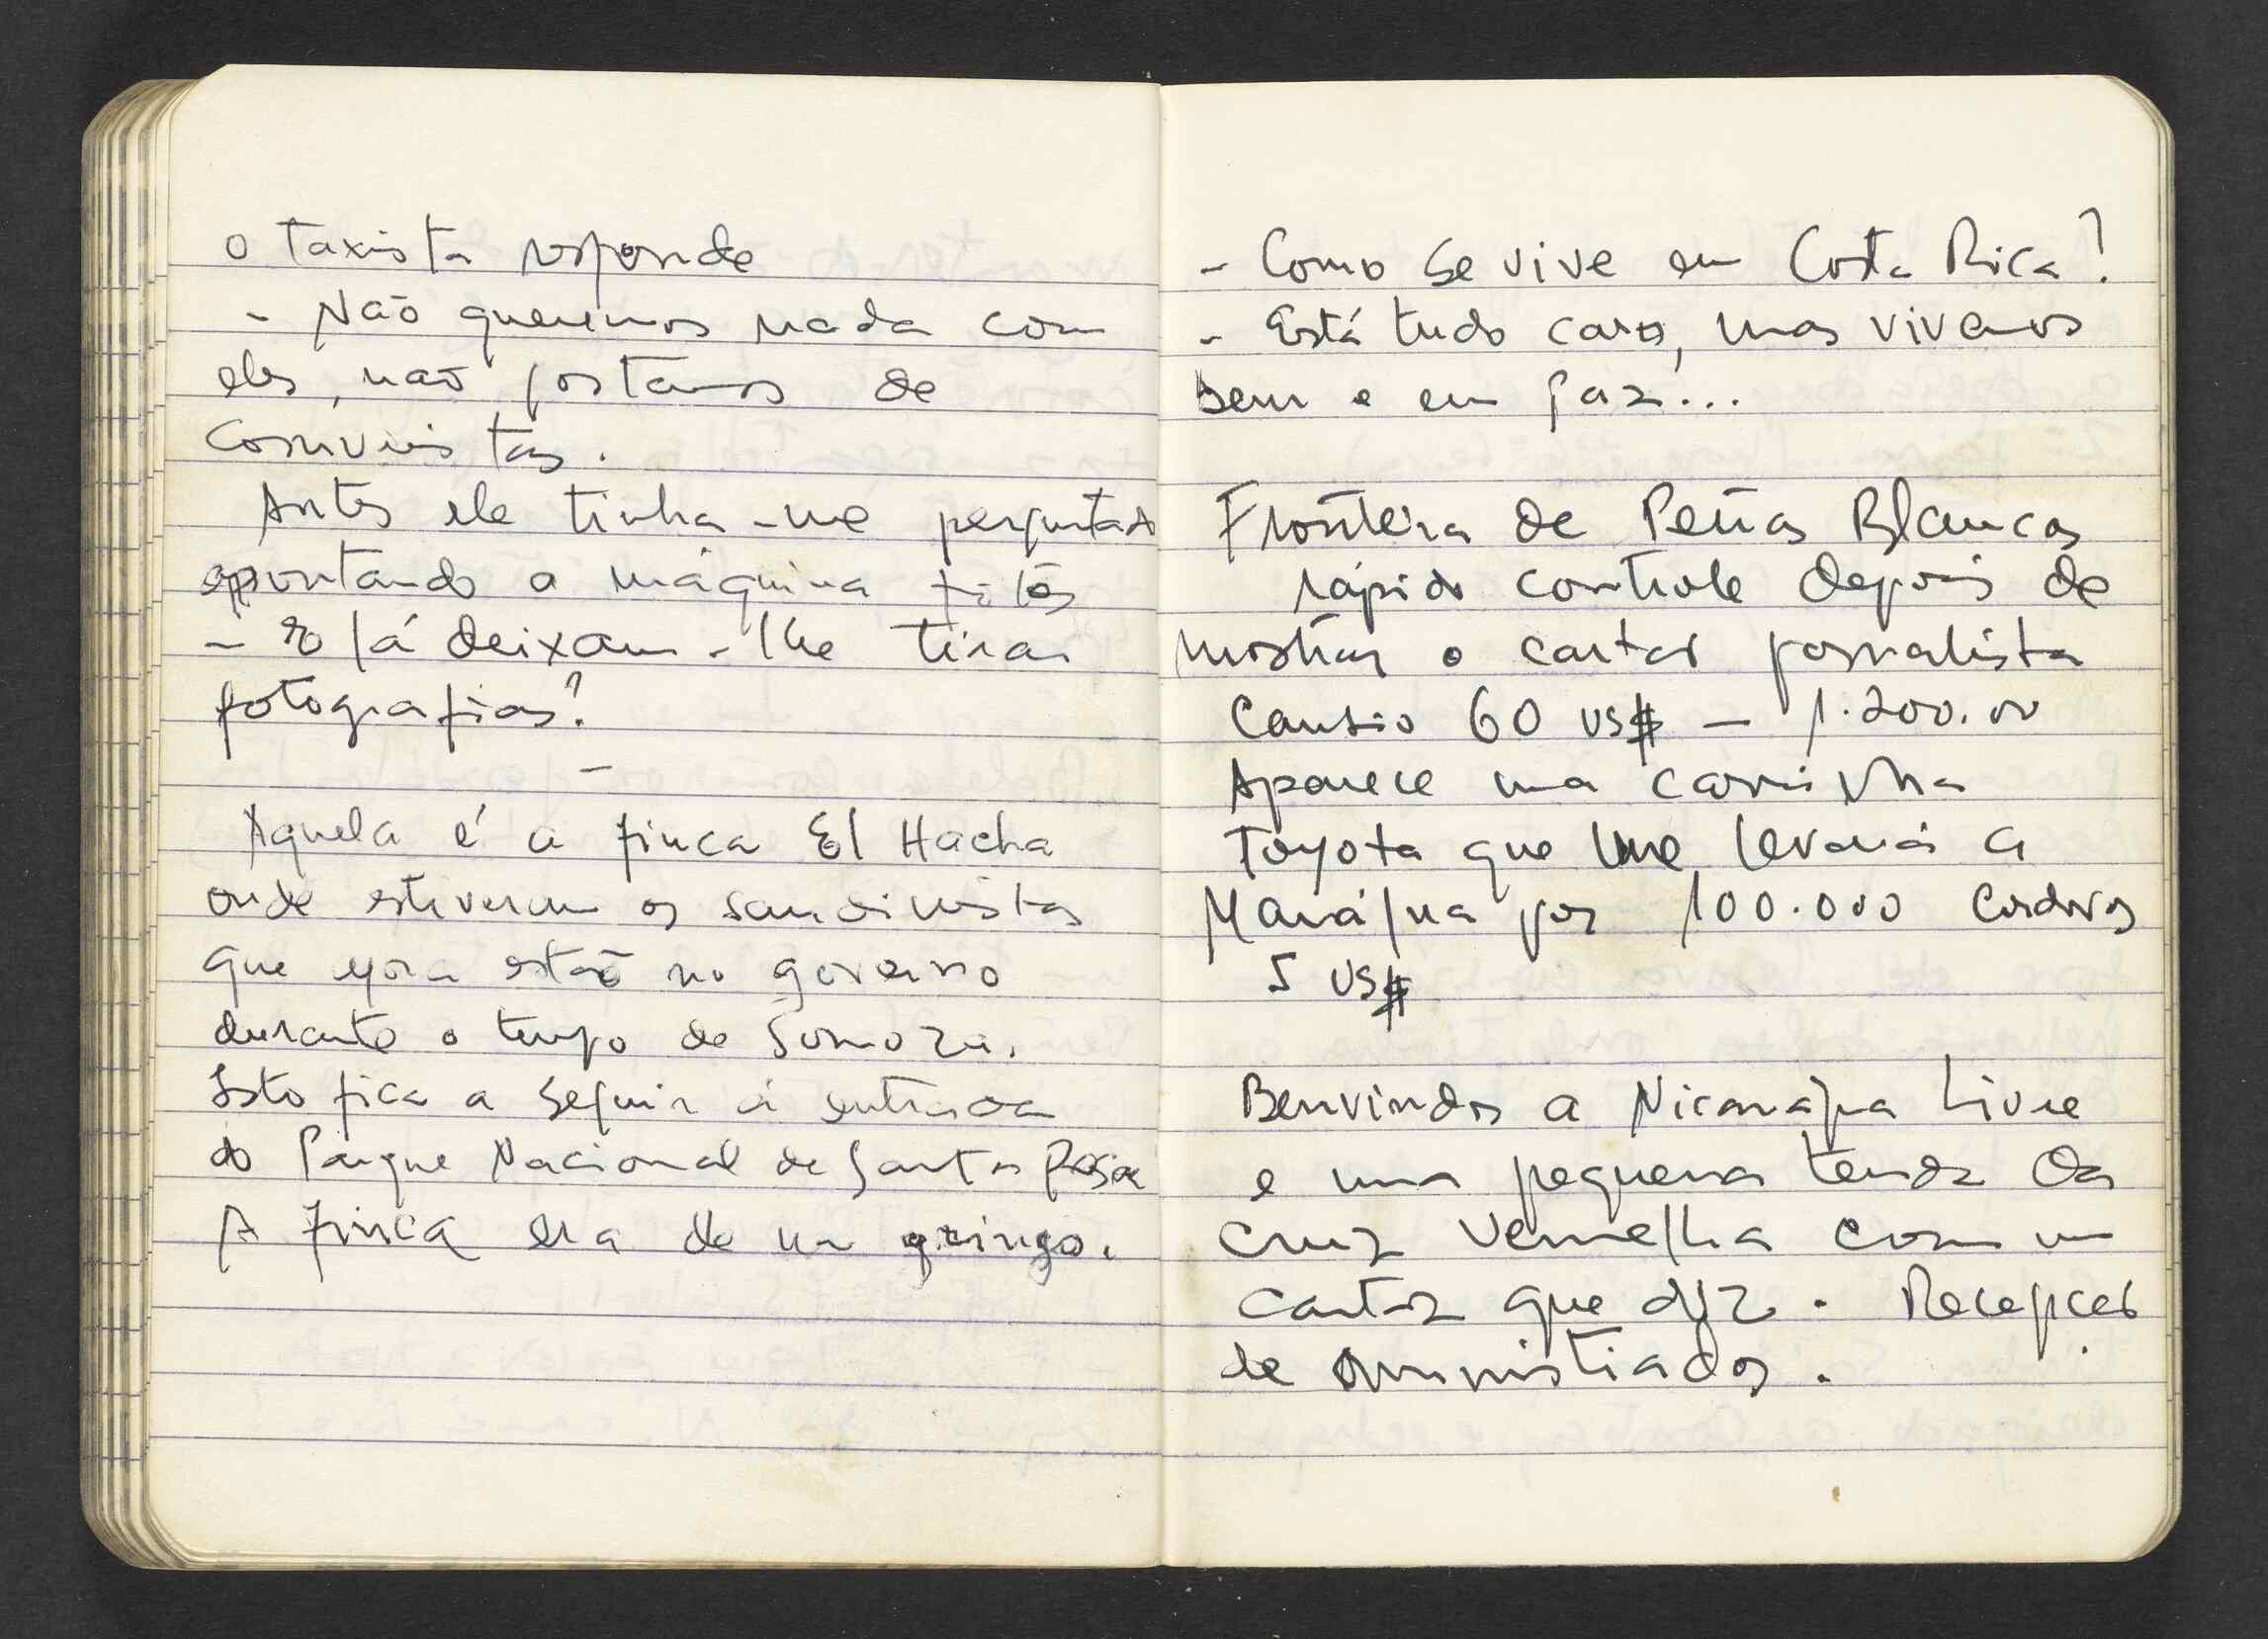 o taxista responde
- Não queremos nada com
eles, não gostamos de
comunistas.
Antes ele tinha-me perguntado
apontando a máquina fotos
- E lá deixam-lhe tirar
fotografias?
-
Aquela é a finca El Hacha
onde estiveram os sandinistas
que agora estão no governo
durante o tempo de Somoza.
Isto fica a seguir á entrada
do Parque Nacional de Santa Rosa
A finca era de um gringo.
- Como se vive em Costa Rica?
- Está tudo caro, mas vivemos
bem e em paz...
Fronteira de Peñas Blancas
rápido controle depois de
mostrar o cartão jornalista
Cambio 60 US$ - 1.200.00
Aparece uma carrinha
Toyota que me levará a
Manágua por 100.000 Cordovas
5 US$
Benvindos a Nicarágua Livre
e uma pequena tenda da
Cruz Vermelha com um
cartaz que diz. Recepção
de amnistiados.